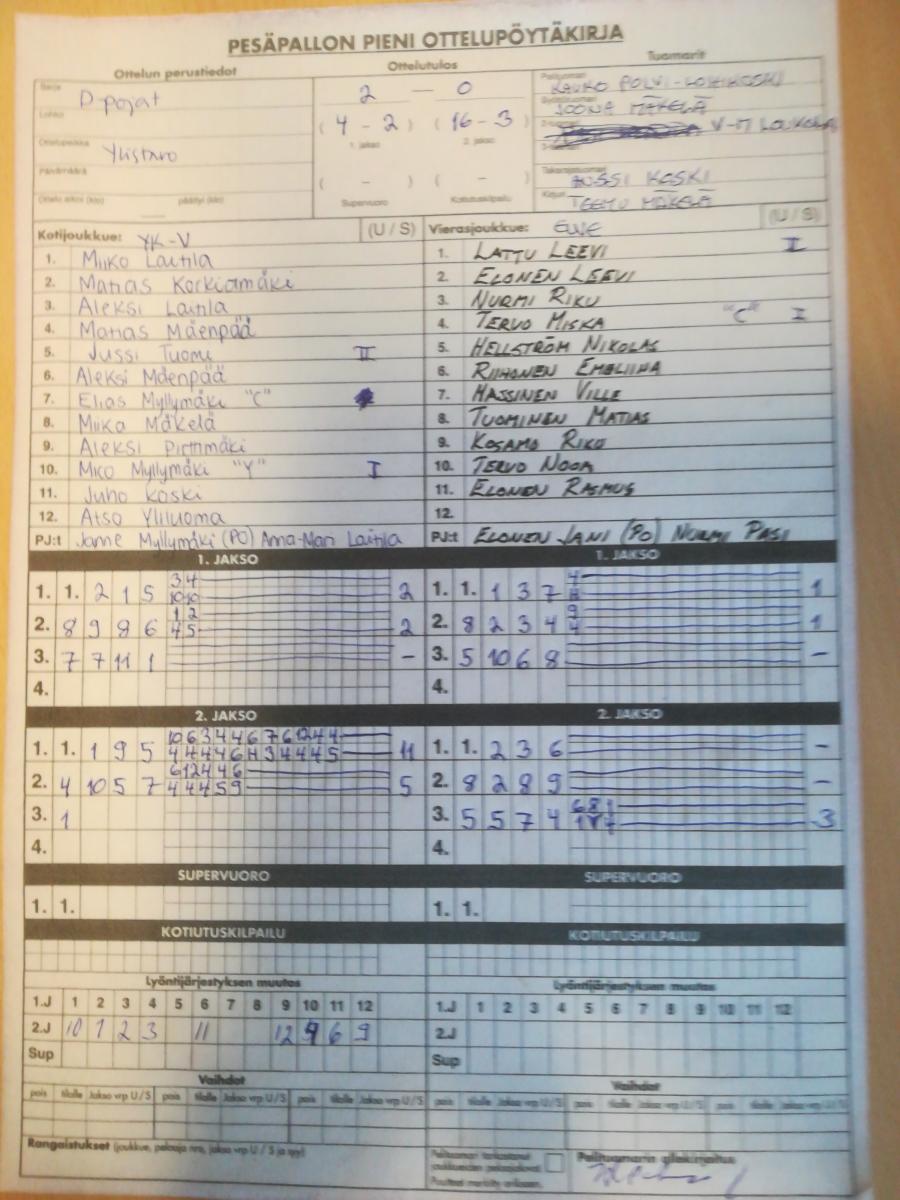 PESÄPALLON PIENI OTTELUPÖYTÄKIRJA
Ottelun perustiedot Ottelutulos Tuomarit
Sarja D pojat 2 — 0 Pelituomari
Lohko (4 - 2) (16 - 3) JOONA MÄKELÄ
1. jakso 2. jakso 2-tuomari
Ottelupaikka Ylistaro 3-tuomari
Päivämäärä ( - ) ( - ) Takarajatuomari JUSSI KOSKI
Ottelu alkoi (klo) päättyi (klo) Supervuoro Kotiutuskilpailu Kirjuri TEEMU MÄKELÄ
Kotijoukkue: YK-V (U / S) Vierasjoukkue: (U / S)
1. Miiko Laitila 1. LATTU LEEVI I
2. Matias Korkiamäki 2. ELONEN LEEVI
3. Aleksi Laitila 3. NURMI RIKU
4. Matias Mäenpää 4. TERVO MISKA "C" I
5. Jussi Tuomi II 5. HELLSTRÖM NIKOLAS
6. Aleksi Mäenpää 6. RIIHONEN
7. Elias Myllymäki "C" 7. HASSINEN VILLE
8. Miika Mäkelä 8. TUOMINEN MATIAS
9. Aleksi Pirttimäki 9. KOSAMO RIKU
10. Myllymäki "Y" I 10. TERVO NOOA
11. Juho Koski 11. ELONEN RASMUS
12. Atso Yliluoma 12.
PJ:t Janne Myllymäki (PO) Anna-Mari Laitila PJ:t ELONEN JANI (PO) NURMI PASI
1. JAKSO 1. JAKSO
1. 1. 2 1 5 3 4 10 10 2 1. 1. 1 3 7 1
2. 8 9 8 6 1 2 4 5 2 2. 8 2 3 4 9 4 1
3. 7 7 11 1 - 3. 5 10 6 8 -
4. 4.
2. JAKSO 2. JAKSO
1. 1. 1 9 5 11 1. 1. 2 3 6 -
2. 4 10 5 7 6 12 4 4 6 4 4 4 5 9 5 2. 8 2 8 9 -
3. 1 3. 5 5 7 4 6 8 1 3
4. 4.
SUPERVUORO SUPERVUORO
1. 1. 1. 1.
KOTIUTUSKILPAILU KOTIUTUSKILPAILU
Lyöntijärjestyksen muutos Lyöntijärjestyksen muutos
1.J 1 2 3 4 5 6 7 8 9 10 11 12 1.J 1 2 3 4 5 6 7 8 9 10 11 12
2.J 10 1 2 3 11 12 6 9 2.J
Sup Sup
Vaihdot Vaihdot
pois tilalle Jakso vrp U / S pois tilalle Jakso vrp U / S pois tilalle Jakso vrp U / S pois tilalle Jakso vrp U / S
Rangaistukset (joukkue, pelaaja nro, jakso vrp U / S ja syy) Pelituomari tarkastanut joukkueiden pelaajaluvat Pelituomarin allekirjoitus
Puutteet merkitty erikseen.